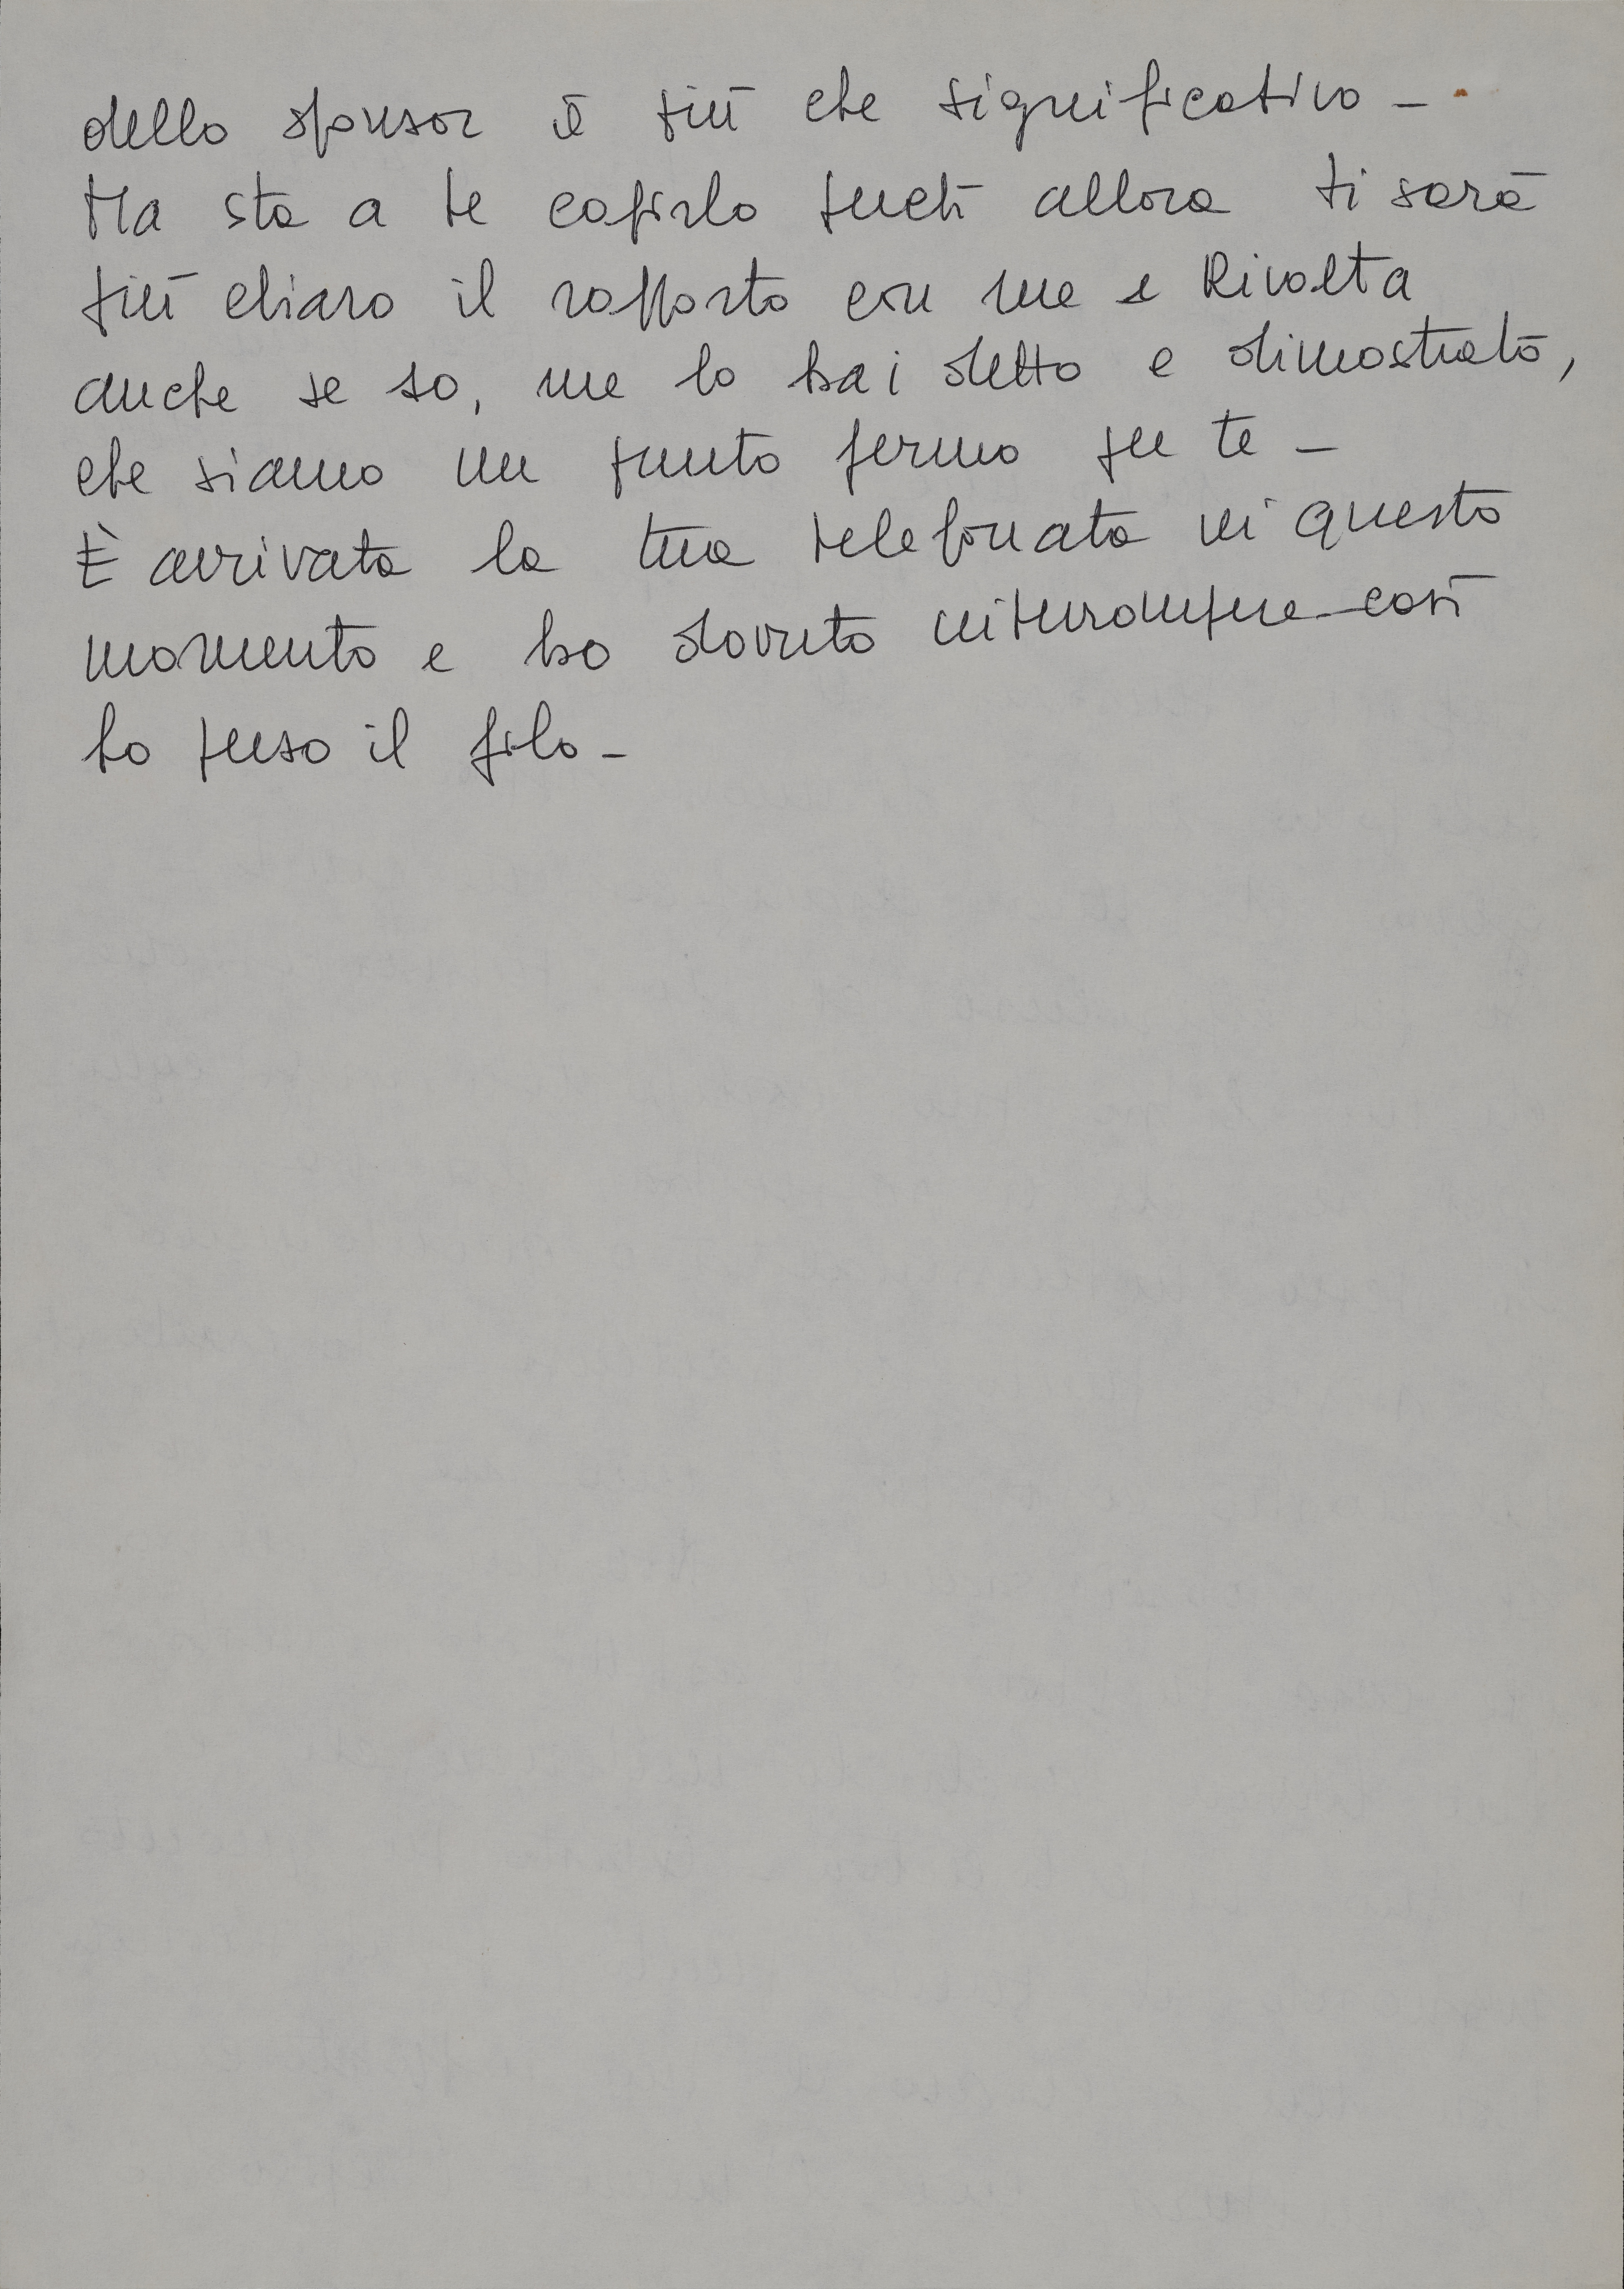 dello sponsor è più che significativo -
Ma sta a te capirlo perché allora ti sarà
più chiaro il rapporto con me e Rivolta
anche se so, me lo hai detto e dimostrato,
che siamo un punto fermo per te -
È arrivata la tua telefonata in questo
momento e ho dovuto interrompere così
ho perso il filo -